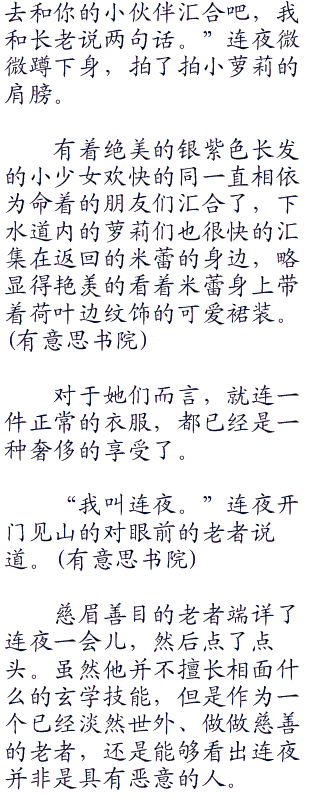 去和你的小伙伴汇合吧，我
和长老说两句话。”连夜微
微蹲下身，拍了拍小萝莉的
肩膀。
有着绝美的银紫色长发
的小少女欢快的同一直相依
为命着的朋友们汇合了，下
水道内的萝莉们也很快的汇
集在返回的米蕾的身边，略
显得艳羡的看着米蕾身上带
着荷叶边纹饰的可爱裙装。
(有意思书院)
对于她们而言，就连一
件正常的衣服，都已经是一
种奢侈的享受了。
“我叫连夜。”连夜开
门见山的对眼前的老者说
道。(有意思书院)
慈眉善目的老者端详了
连夜一会儿，然后点了点
头。虽然他并不擅长相面什
么的玄学技能，但是作为一
个已经淡然世外、做做慈善
的老者，还是能够看出连夜
并非是具有恶意的人。